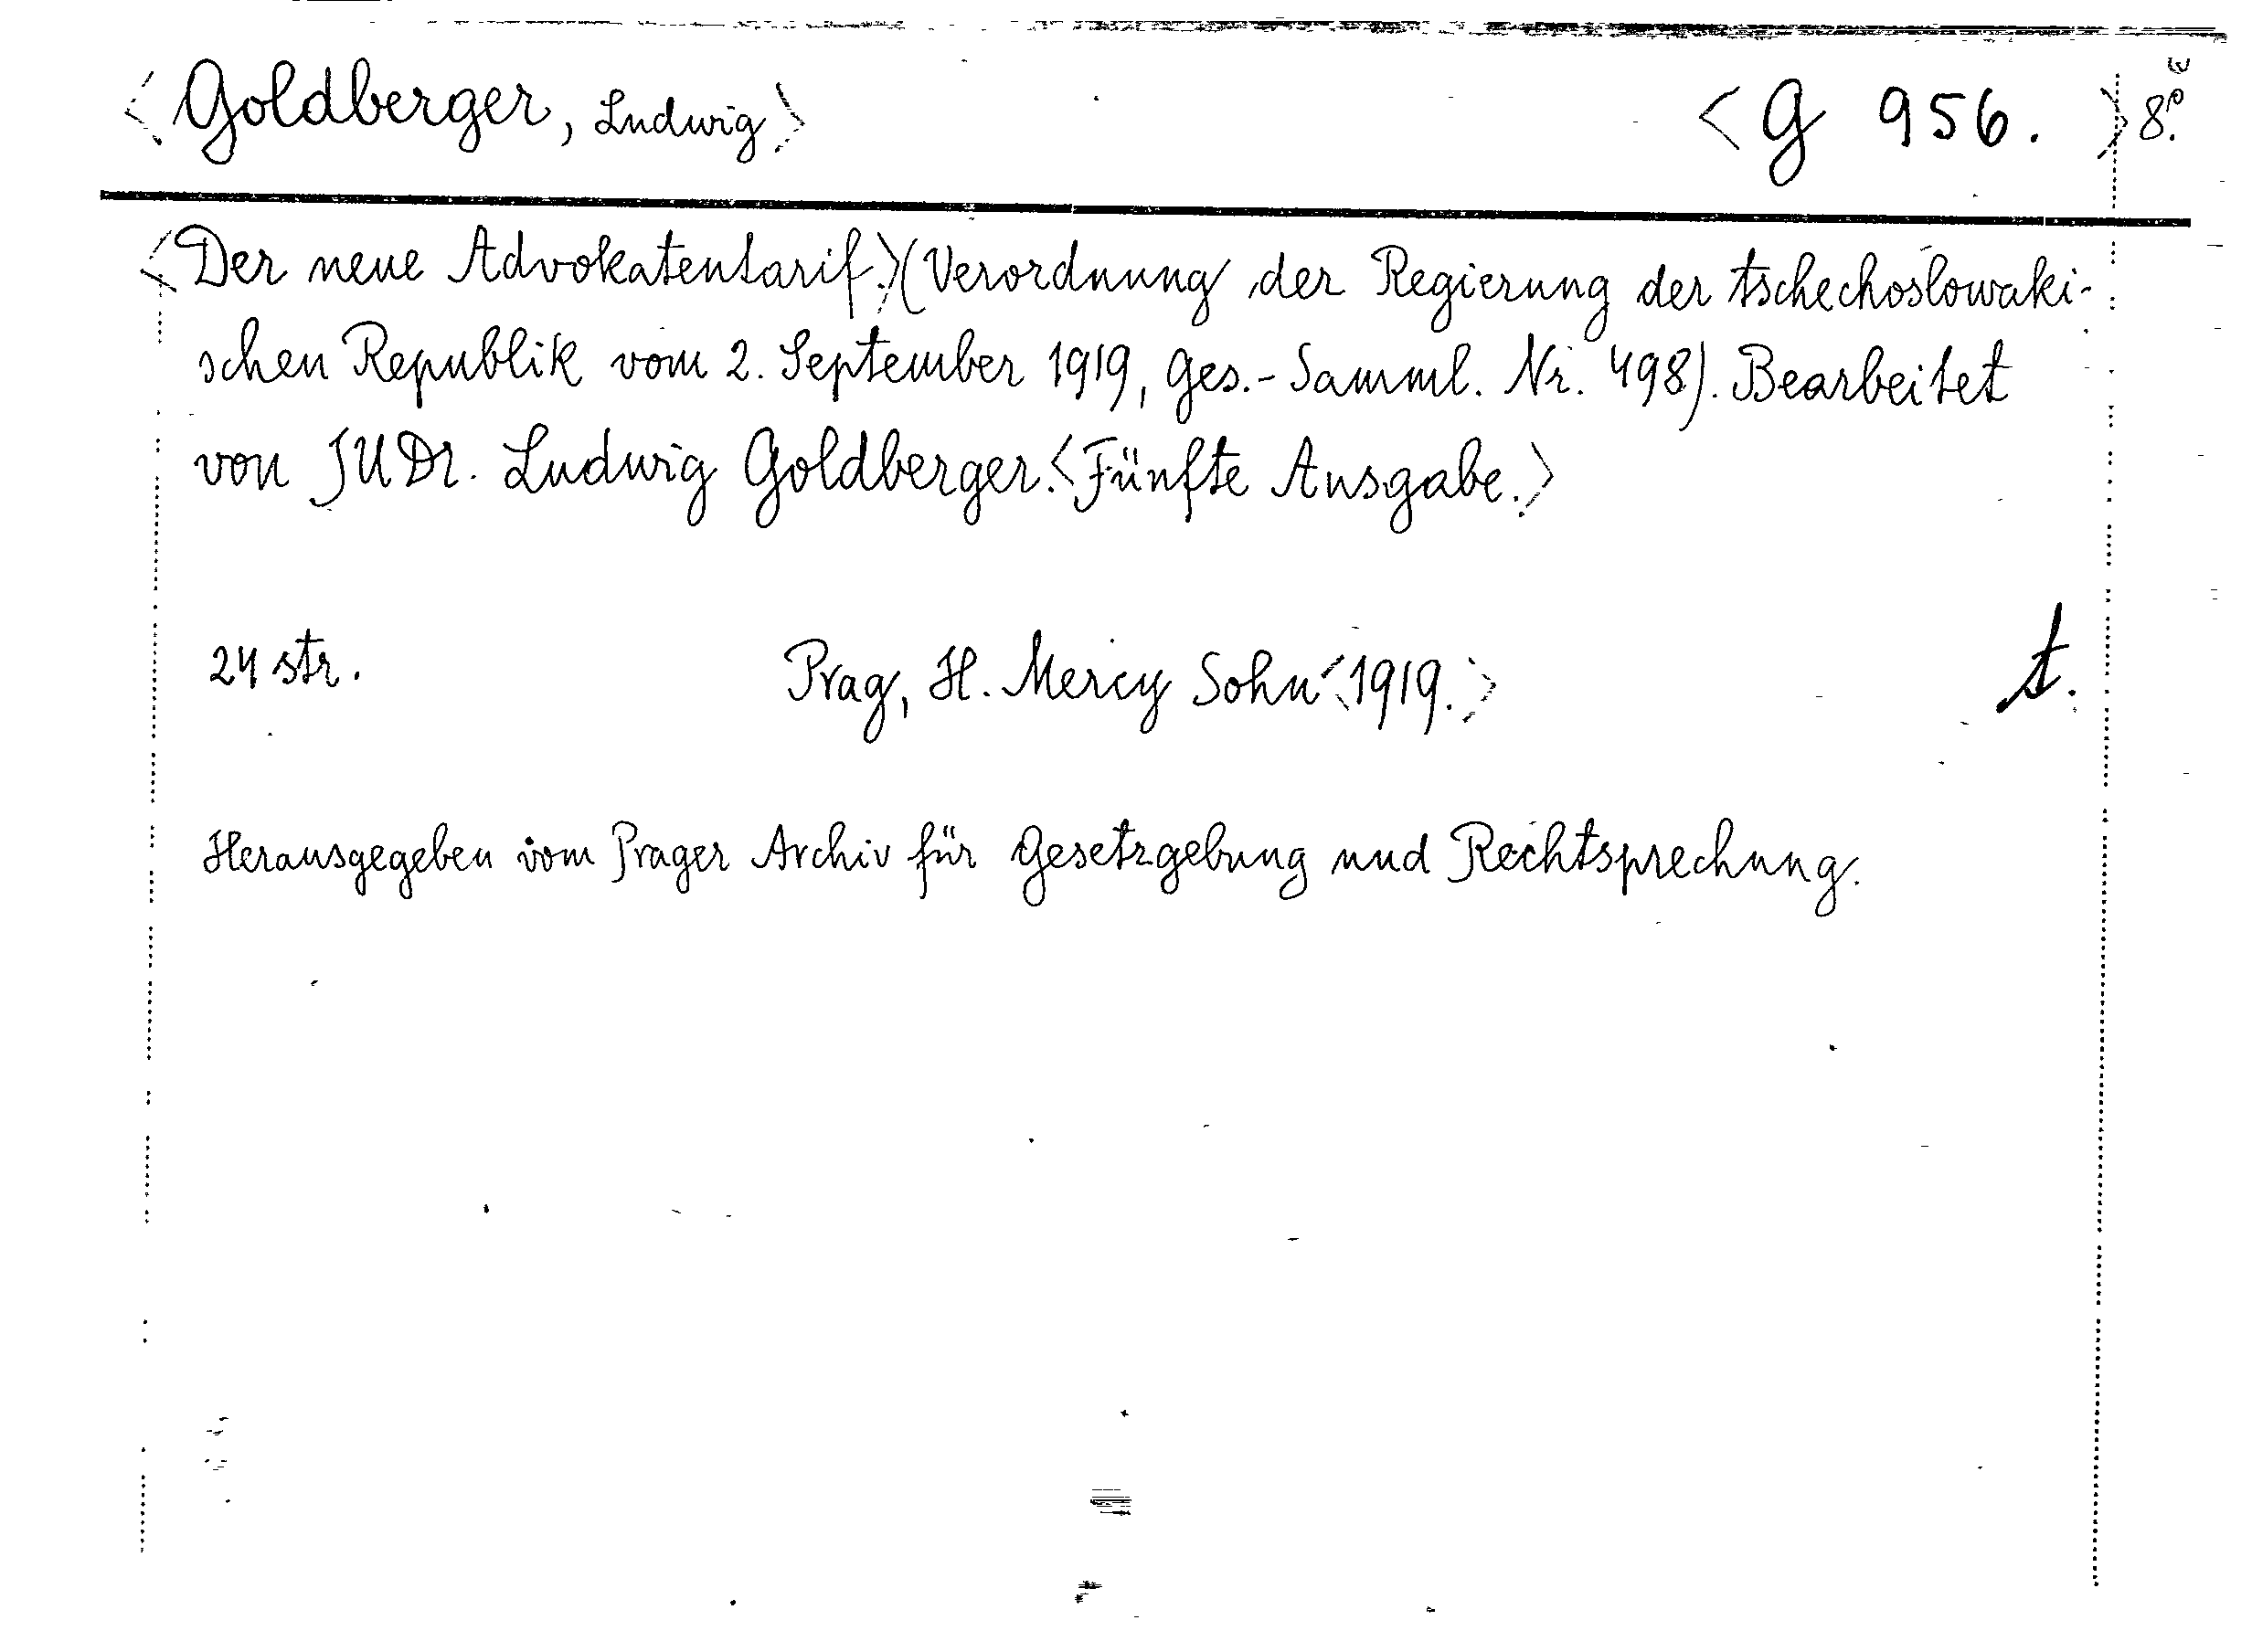 <Goldberger, Ludwig> <G 956.> 8.°
<Der neue Advokatentarif.> (Verordnung der Regierung der tschechoslowaki-
schen Republik vom 2. September 1919, Ges.-Samml. Nr. 498). Bearbeitet
von JUDr. Ludwig Goldberger. <Fünfte Ausgabe.>
24 str. Prag, H. Mercy Sohn <1919.> t.
Herausgegeben vom Prager Archiv für Gesetzgebung und Rechtsprechung.